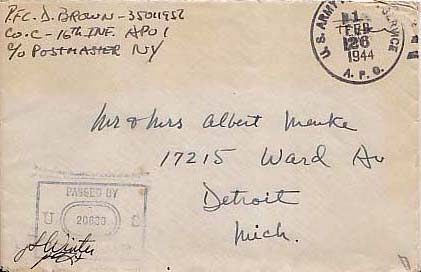 P.F.C. D. BROWN - 35011952
CO. C - 16TH INF. APO 1
C/O POSTMASTER NY
U.S. ARMY SERVICE
1
FEB
26
1944
A.P.O.
Mr & Mrs Albert Menke
17215 Ward Av
Detroit
Mich.
PASSED BY
U S
20633